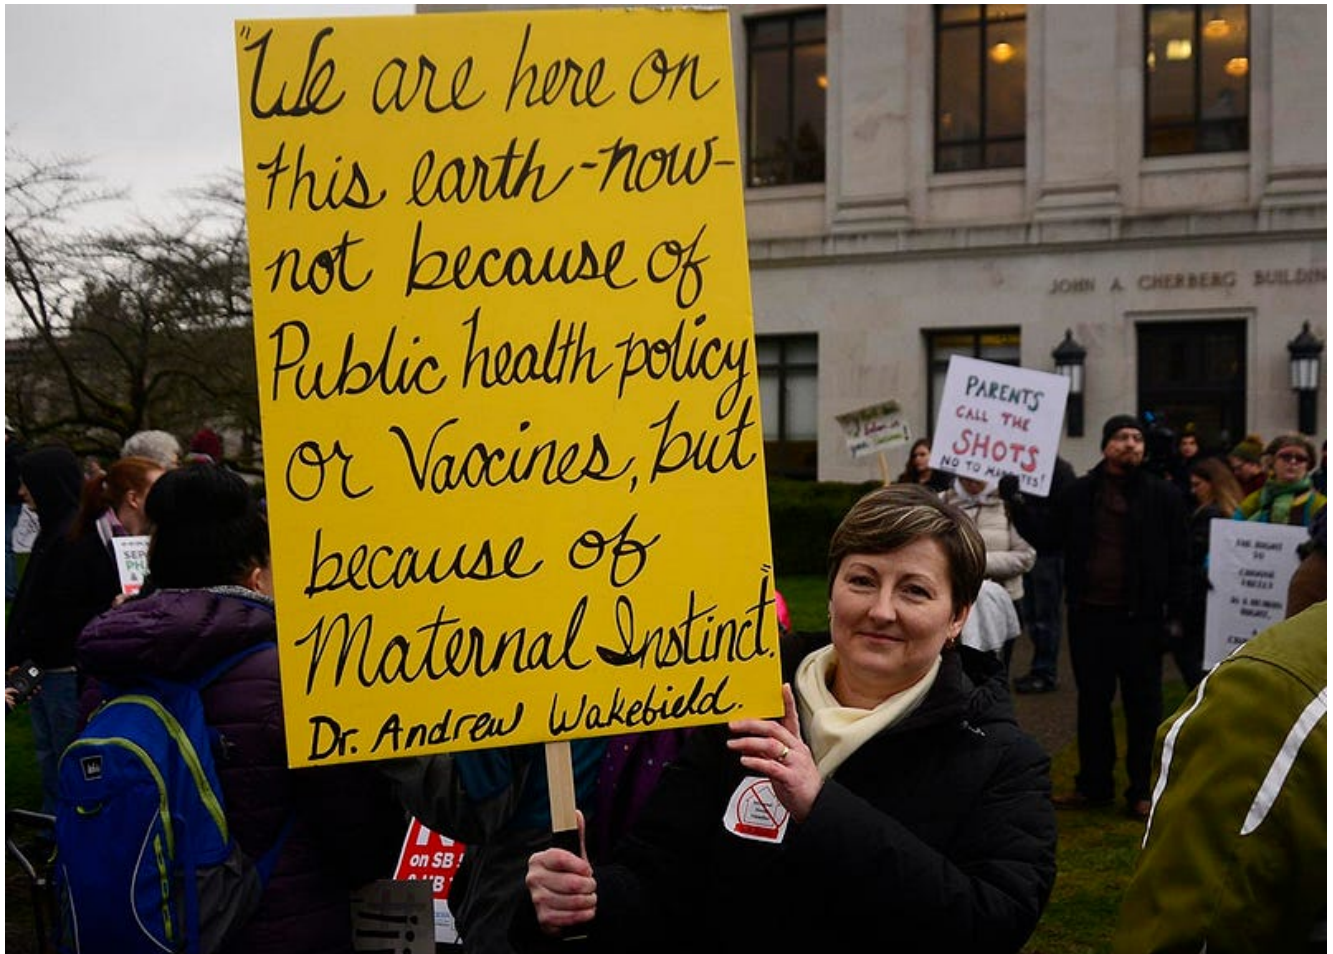 "We are here on
this earth-now-
not because of
Public health policy
or Vaccines, but
because of
Maternal Instinct."
Dr. Andrew Wakefield.
JOHN A CHERBERG BUILDIN
PARENTS
CALL THE
SHOTS
NO TO MANDATES!
THE RIGHT
TO
IS A HUMAN
RIGHT.
SEP
PH
&
on SB